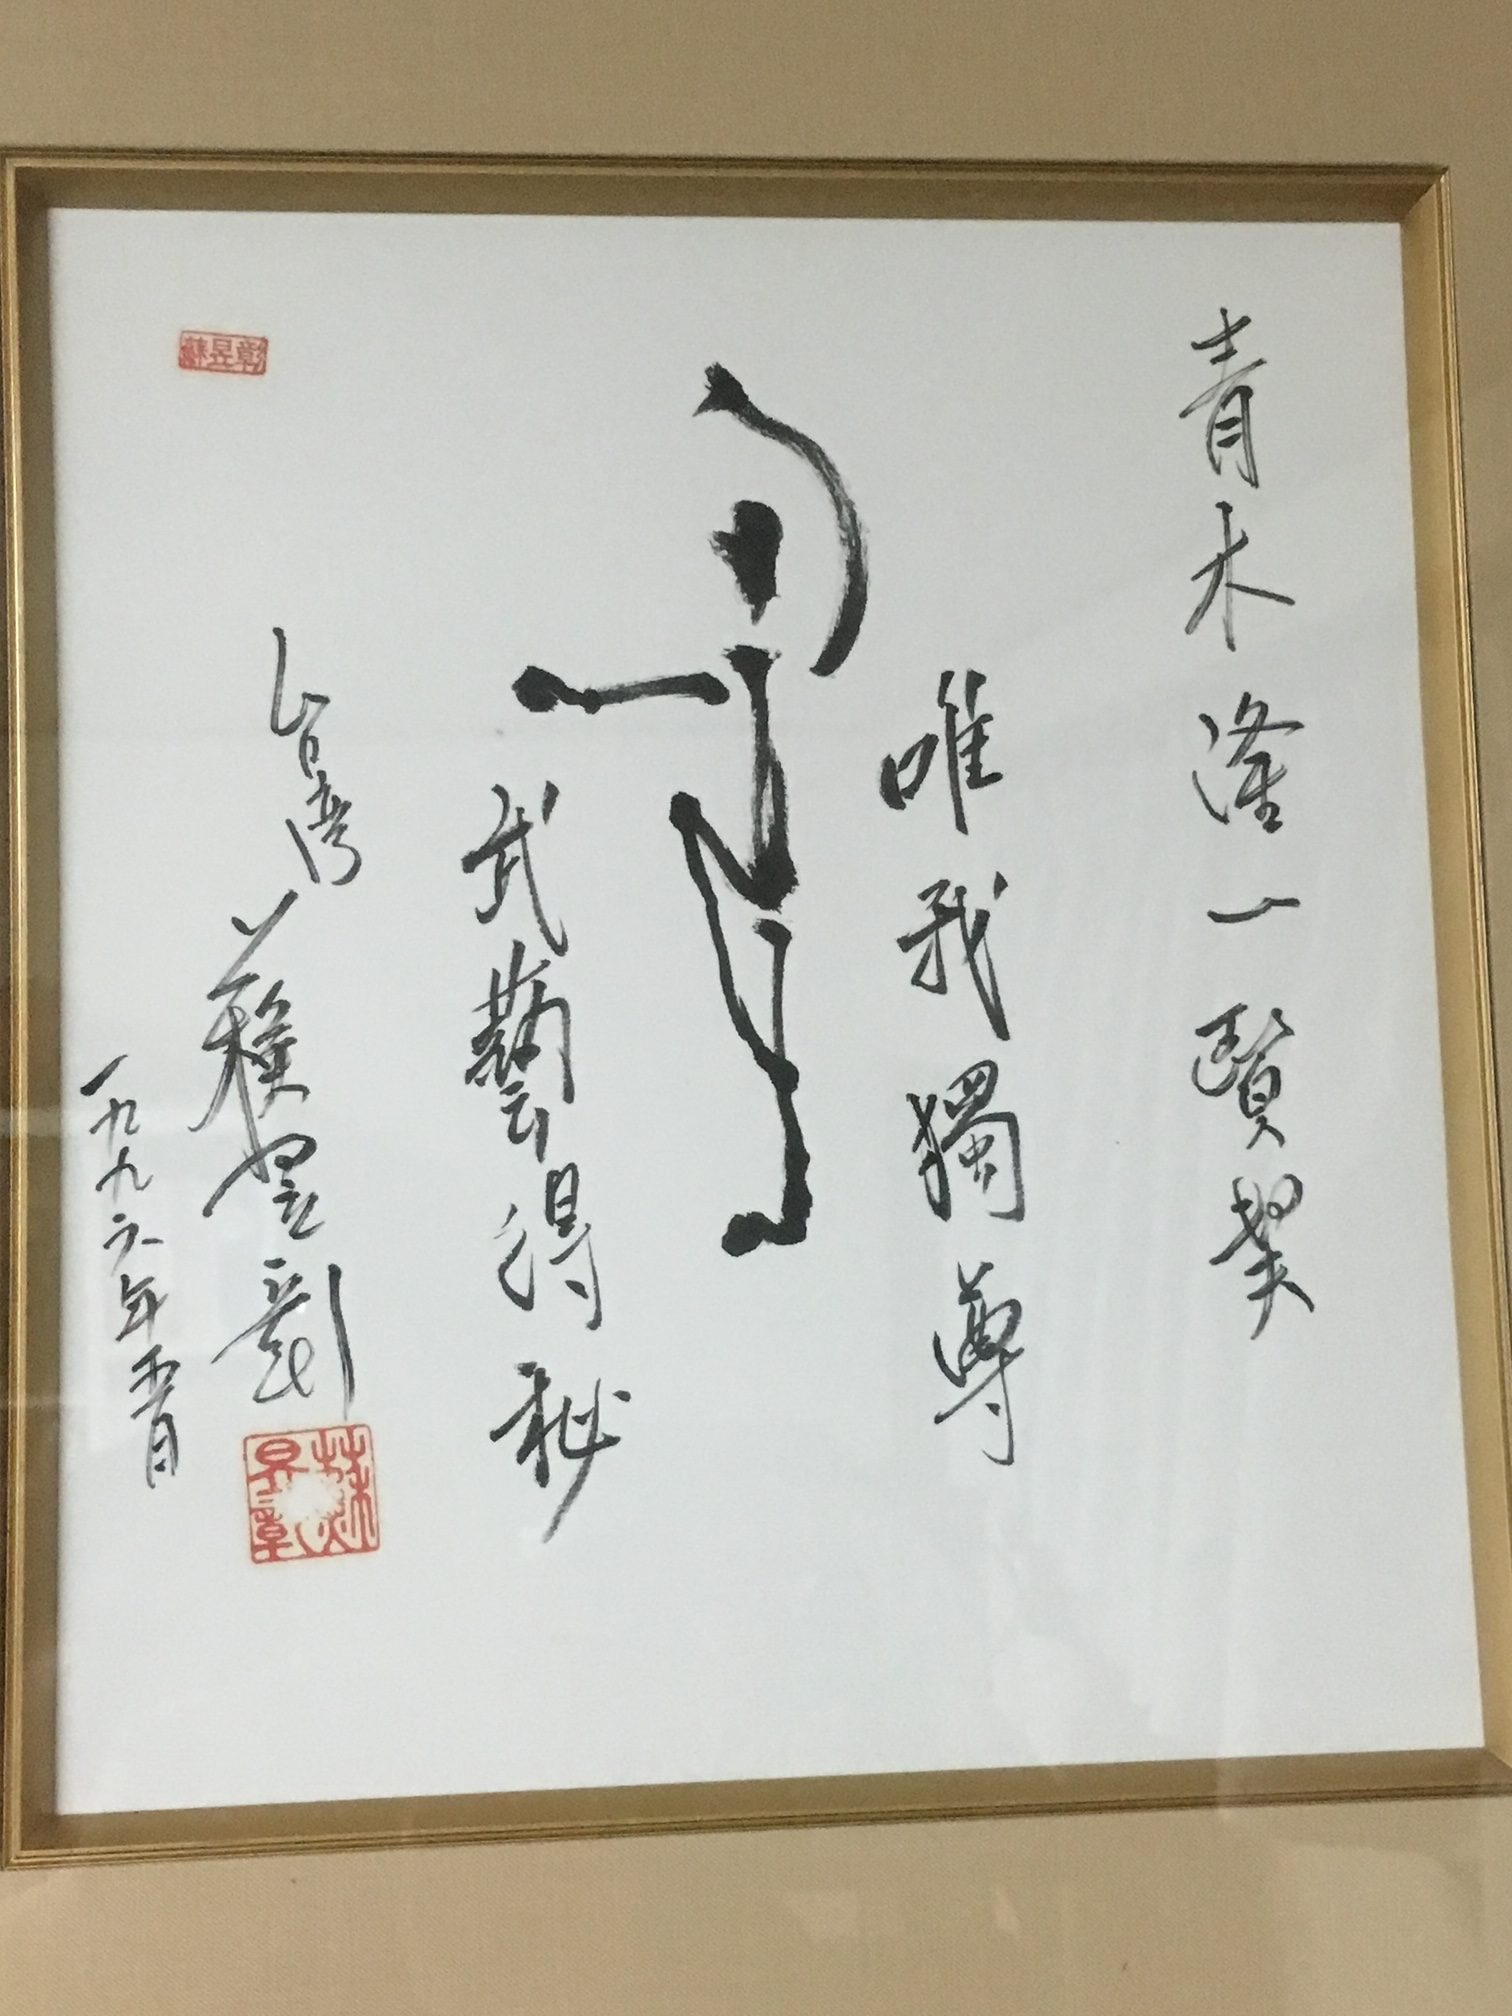 青木逢一賢契
唯我獨尊
武藝得秘
台湾 蘇昱彰
一九九六年一月
蘇昱彰
蘇昱彰